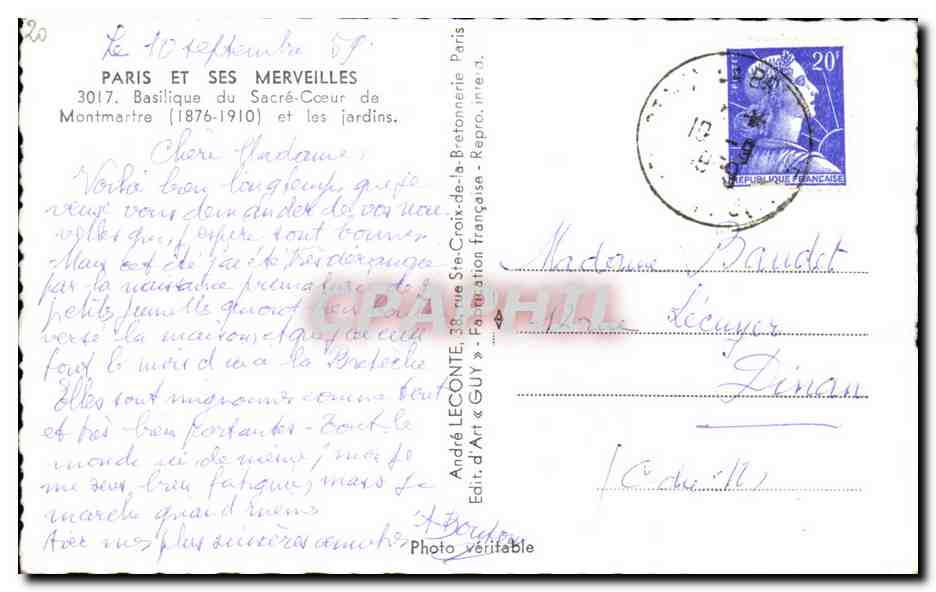 20
Le 10 septembre 59
PARIS ET SES MERVEILLES
3017. Basilique du Sacré-Cœur de
Montmartre (1876-1910) et les jardins.
Chère Madame,
Voilà bien longtemps que je
veux vous demander de vos nou
velles que j'espère sont bonnes
Mais cet été j'ai été très dérangée
par la naissance prématurée de 2
petites jumelles qui ont
versé la maison, et que j'ai eu
tout le mois d à la Bretèche
Elles sont mignonnes comme tout
et très bien portantes - Tout le
monde ici de même, moi je
me sens bien fatiguée, mais je
marche quand même
Avec mes plus sincères amitiés
Photo véritable
André LECONTE, 38, rue Ste-Croix-de-la-Bretonnerie Paris
Edit. d'Art « GUY » - Fabrication française - Repro. interd.
CPAPHIL
20F
POSTES
REPUBLIQUE FRANÇAISE
10 - 9
1959
Madame Baudet
12 rue Lécuyer
Dinan
(C du N)